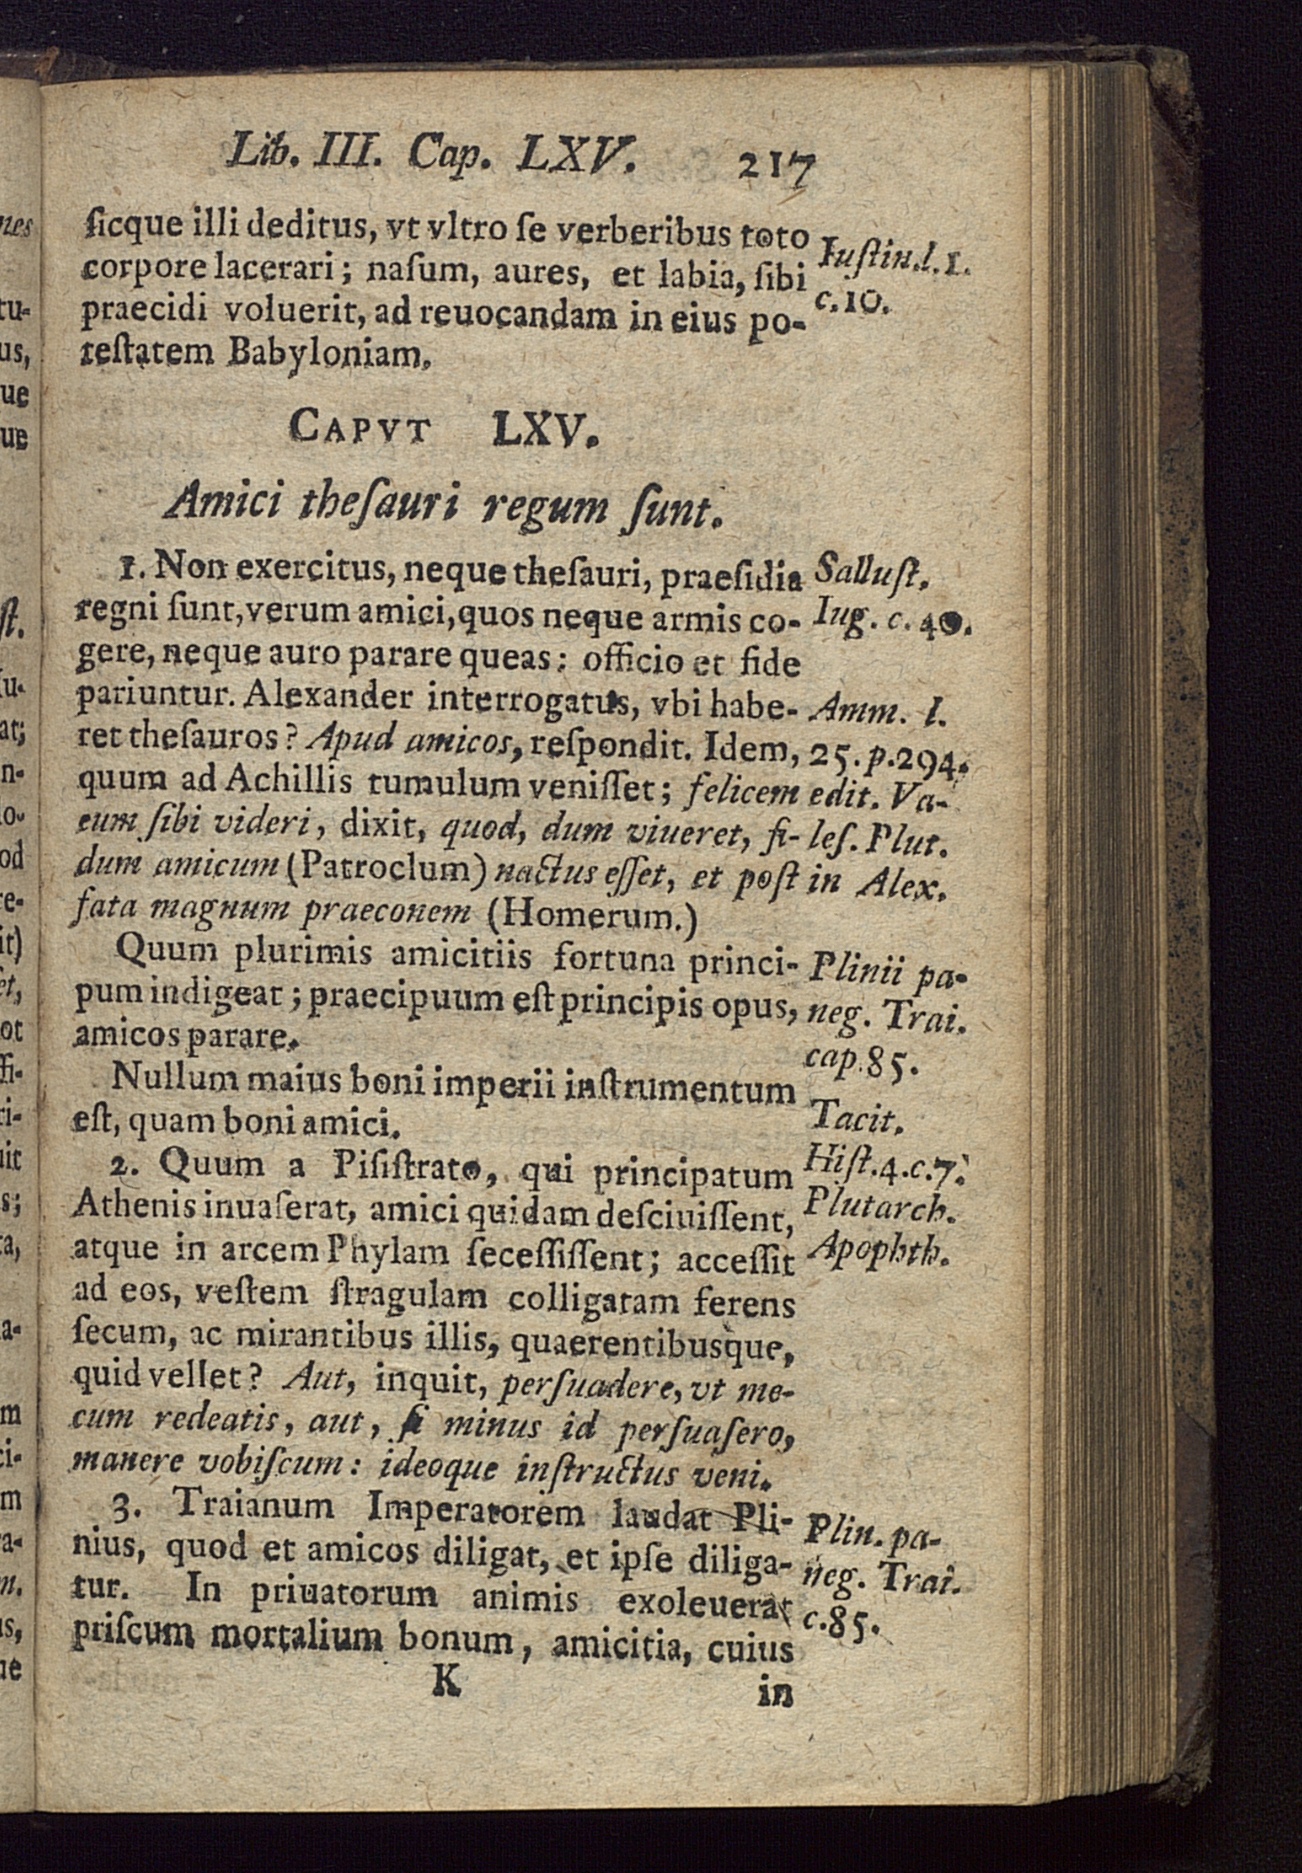 Lib. III. Cap. LXV. 217
ſicque illi deditus, vt vltro ſe verberibus toto
corpore lacerari; naſum, aures, et labia, ſibi
praecidi voluerit, ad reuocandam in eius po-
teſtatem Babyloniam.
Iuſtin. l. 1.
c. 10.
CAPVT LXV.
Amici theſauri regum ſunt.
1. Non exercitus, neque theſauri, praeſidia
regni ſunt, verum amici, quos neque armis co-
gere, neque auro parare queas: officio et fide
pariuntur. Alexander interrogatus, vbi habe-
ret theſauros? Apud amicos, reſpondit. Idem,
quum ad Achillis tumulum veniſſet; felicem
eum ſibi videri, dixit, quod, dum viueret, fi-
dum amicum (Patroclum) nactus eſſet, et poſt
fata magnum praeconem (Homerum.)
Salluſt.
Iug. c. 40.
Amm. l.
25. p. 294.
edit. Va-
leſ. Plut.
in Alex.
Quum plurimis amicitiis fortuna princi-
pum indigeat; praecipuum eſt principis opus,
amicos parare.
Plinii pa-
neg. Trai.
cap. 85.
Nullum maius boni imperii inſtrumentum
eſt, quam boni amici.
Tacit.
Hiſt. 4. c. 7.
2. Quum a Piſiſtrato, qui principatum
Athenis inuaſerat, amici quidam deſciuiſſent,
atque in arcem Phylam ſeceſſiſſent; acceſſit
ad eos, veſtem ſtragulam colligatam ferens
ſecum, ac mirantibus illis, quaerentibusque,
quid vellet? Aut, inquit, perſuadere, vt me-
cum redeatis, aut, ſi minus id perſuaſero,
manere vobiſcum: ideoque inſtructus veni.
Plutarch.
Apophth.
3. Traianum Imperatorem laudat Pli-
nius, quod et amicos diligat, et ipſe diliga-
tur. In priuatorum animis exoleuerat
priſcum mortalium bonum, amicitia, cuius
Plin. pa-
neg. Trai.
c. 85.
K in